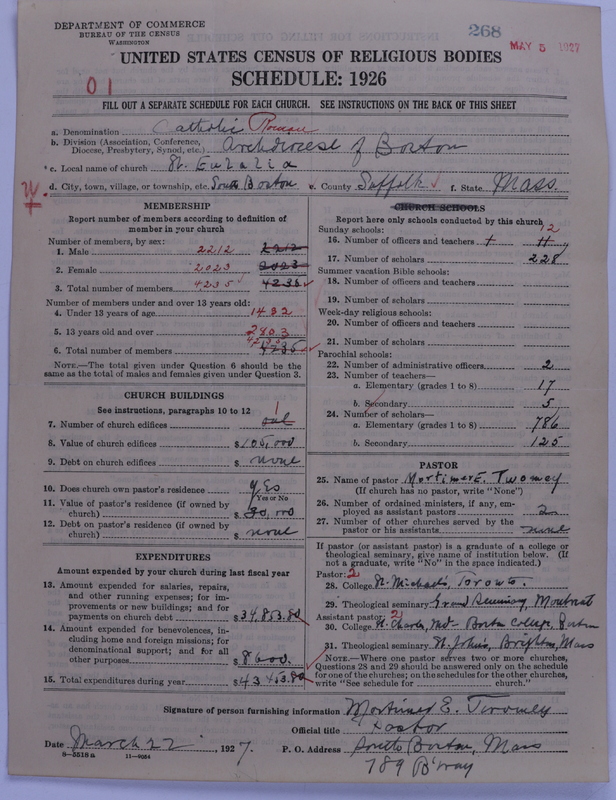 DEPARTMENT OF COMMERCE
BUREAU OF THE CENSUS
WASHINGTON
268
MAY 5 1927
UNITED STATES CENSUS OF RELIGIOUS BODIES
SCHEDULE: 1926
01
FILL OUT A SEPARATE SCHEDULE FOR EACH CHURCH. SEE INSTRUCTIONS ON THE BACK OF THIS SHEET
a. Denomination Catholic Roman
b. Division (Association, Conference, Diocese, Presbytery, Synod, etc.) Archdiocese of Boston
c. Local name of church St. Eulalia
d. City, town, village, or township, etc. South Boston e. County Suffolk f. State Mass.
MEMBERSHIP
Report number of members according to definition of member in your church
Number of members, by sex:
1. Male 2212 2212
2. Female 2023 2023
3. Total number of members 4235 4235
Number of members under and over 13 years old:
4. Under 13 years of age 1432
5. 13 years old and over 2803
6. Total number of members 4235 4235
NOTE.—The total given under Question 6 should be the same as the total of males and females given under Question 3.
CHURCH BUILDINGS
See instructions, paragraphs 10 to 12
7. Number of church edifices 1 one
8. Value of church edifices $105,000
9. Debt on church edifices $ none
10. Does church own pastor's residence Yes
Yes or No
11. Value of pastor's residence (if owned by church) $ 30,000
12. Debt on pastor's residence (if owned by church) $ none
EXPENDITURES
Amount expended by your church during last fiscal year
13. Amount expended for salaries, repairs, and other running expenses; for improvements or new buildings; and for payments on church debt $34,853.80
14. Amount expended for benevolences, including home and foreign missions; for denominational support; and for all other purposes $8600.
15. Total expenditures during year $43,453.80
CHURCH SCHOOLS
Report here only schools conducted by this church
Sunday schools:
16. Number of officers and teachers 12 11
17. Number of scholars 228
Summer vacation Bible schools:
18. Number of officers and teachers
19. Number of scholars
Week-day religious schools:
20. Number of officers and teachers
21. Number of scholars
Parochial schools:
22. Number of administrative officers 2
23. Number of teachers—
a. Elementary (grades 1 to 8) 17
b. Secondary 5
24. Number of scholars—
a. Elementary (grades 1 to 8) 786
b. Secondary 125
PASTOR
25. Name of pastor Mortimer E. Twomey
(If church has no pastor, write "None")
26. Number of ordained ministers, if any, employed as assistant pastors 2
27. Number of other churches served by the pastor or his assistants none
If pastor (or assistant pastor) is a graduate of a college or theological seminary, give name of institution below. (If not a graduate, write "No" in the space indicated.)
Pastor: 2
28. College St. Michael's, Toronto.
29. Theological seminary Grand Seminary, Montreal
Assistant pastor: 2
30. College St. Charles, Md - Boston College, Boston
31. Theological seminary St. John's, Brighton, Mass
NOTE.—Where one pastor serves two or more churches, Questions 28 and 29 should be answered only on the schedule for one of the churches; on the schedules for the other churches, write "See schedule for church."
Signature of person furnishing information Mortimer E. Twomey
Official title Pastor
Date March 22, 1927. P. O. Address South Boston, Mass
789 B'way
8—5518 a 11—9084